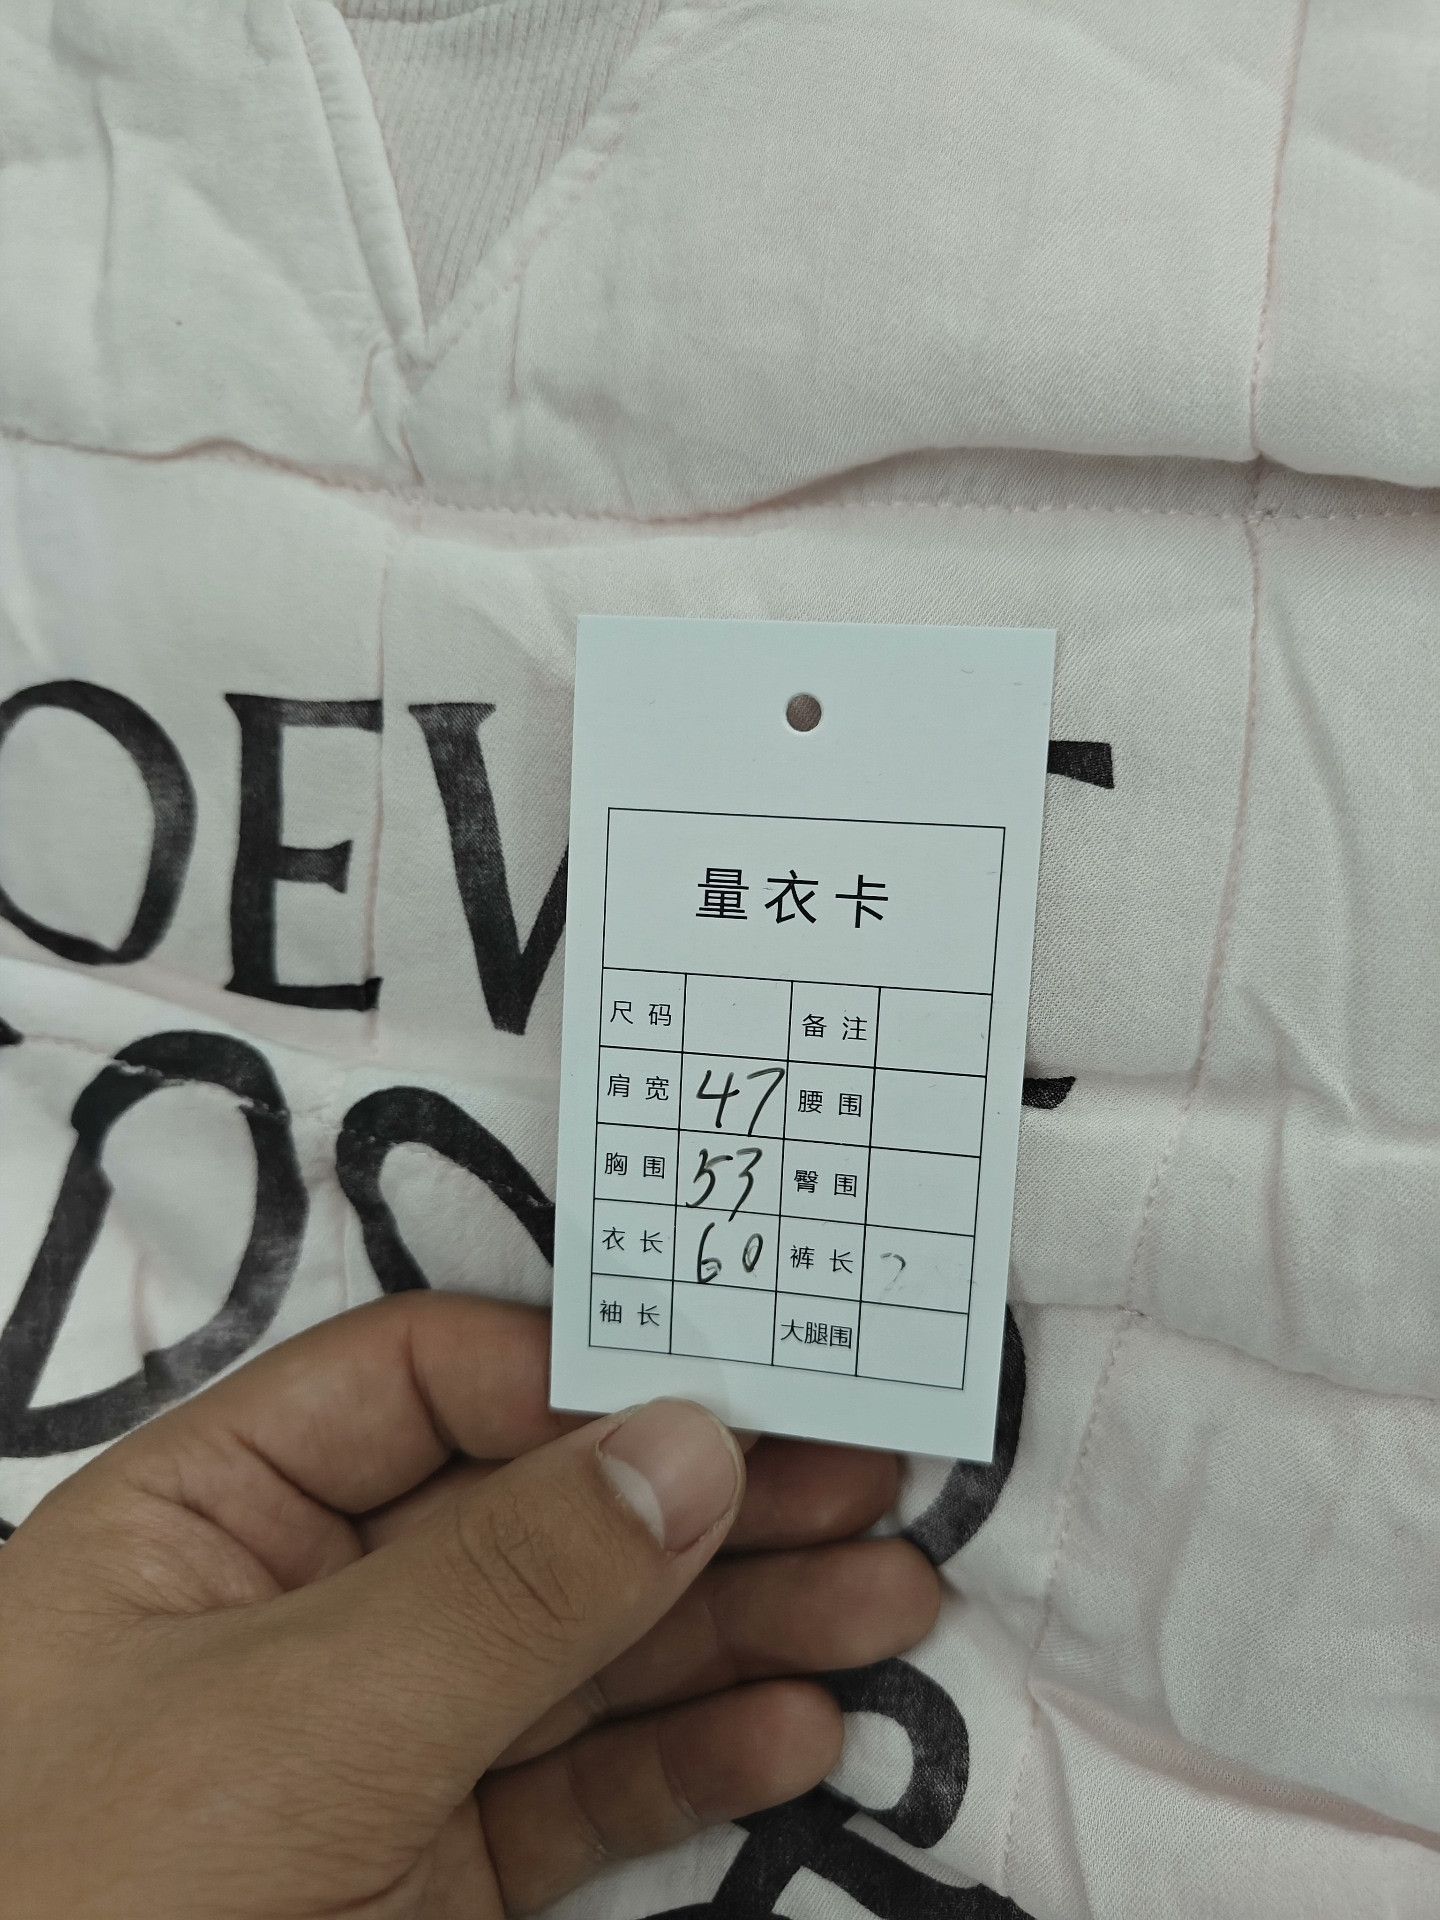 OEV
量衣卡
尺码 备注
肩宽 47 腰围
胸围 53 臀围
衣长 60 裤长
袖长 大腿围